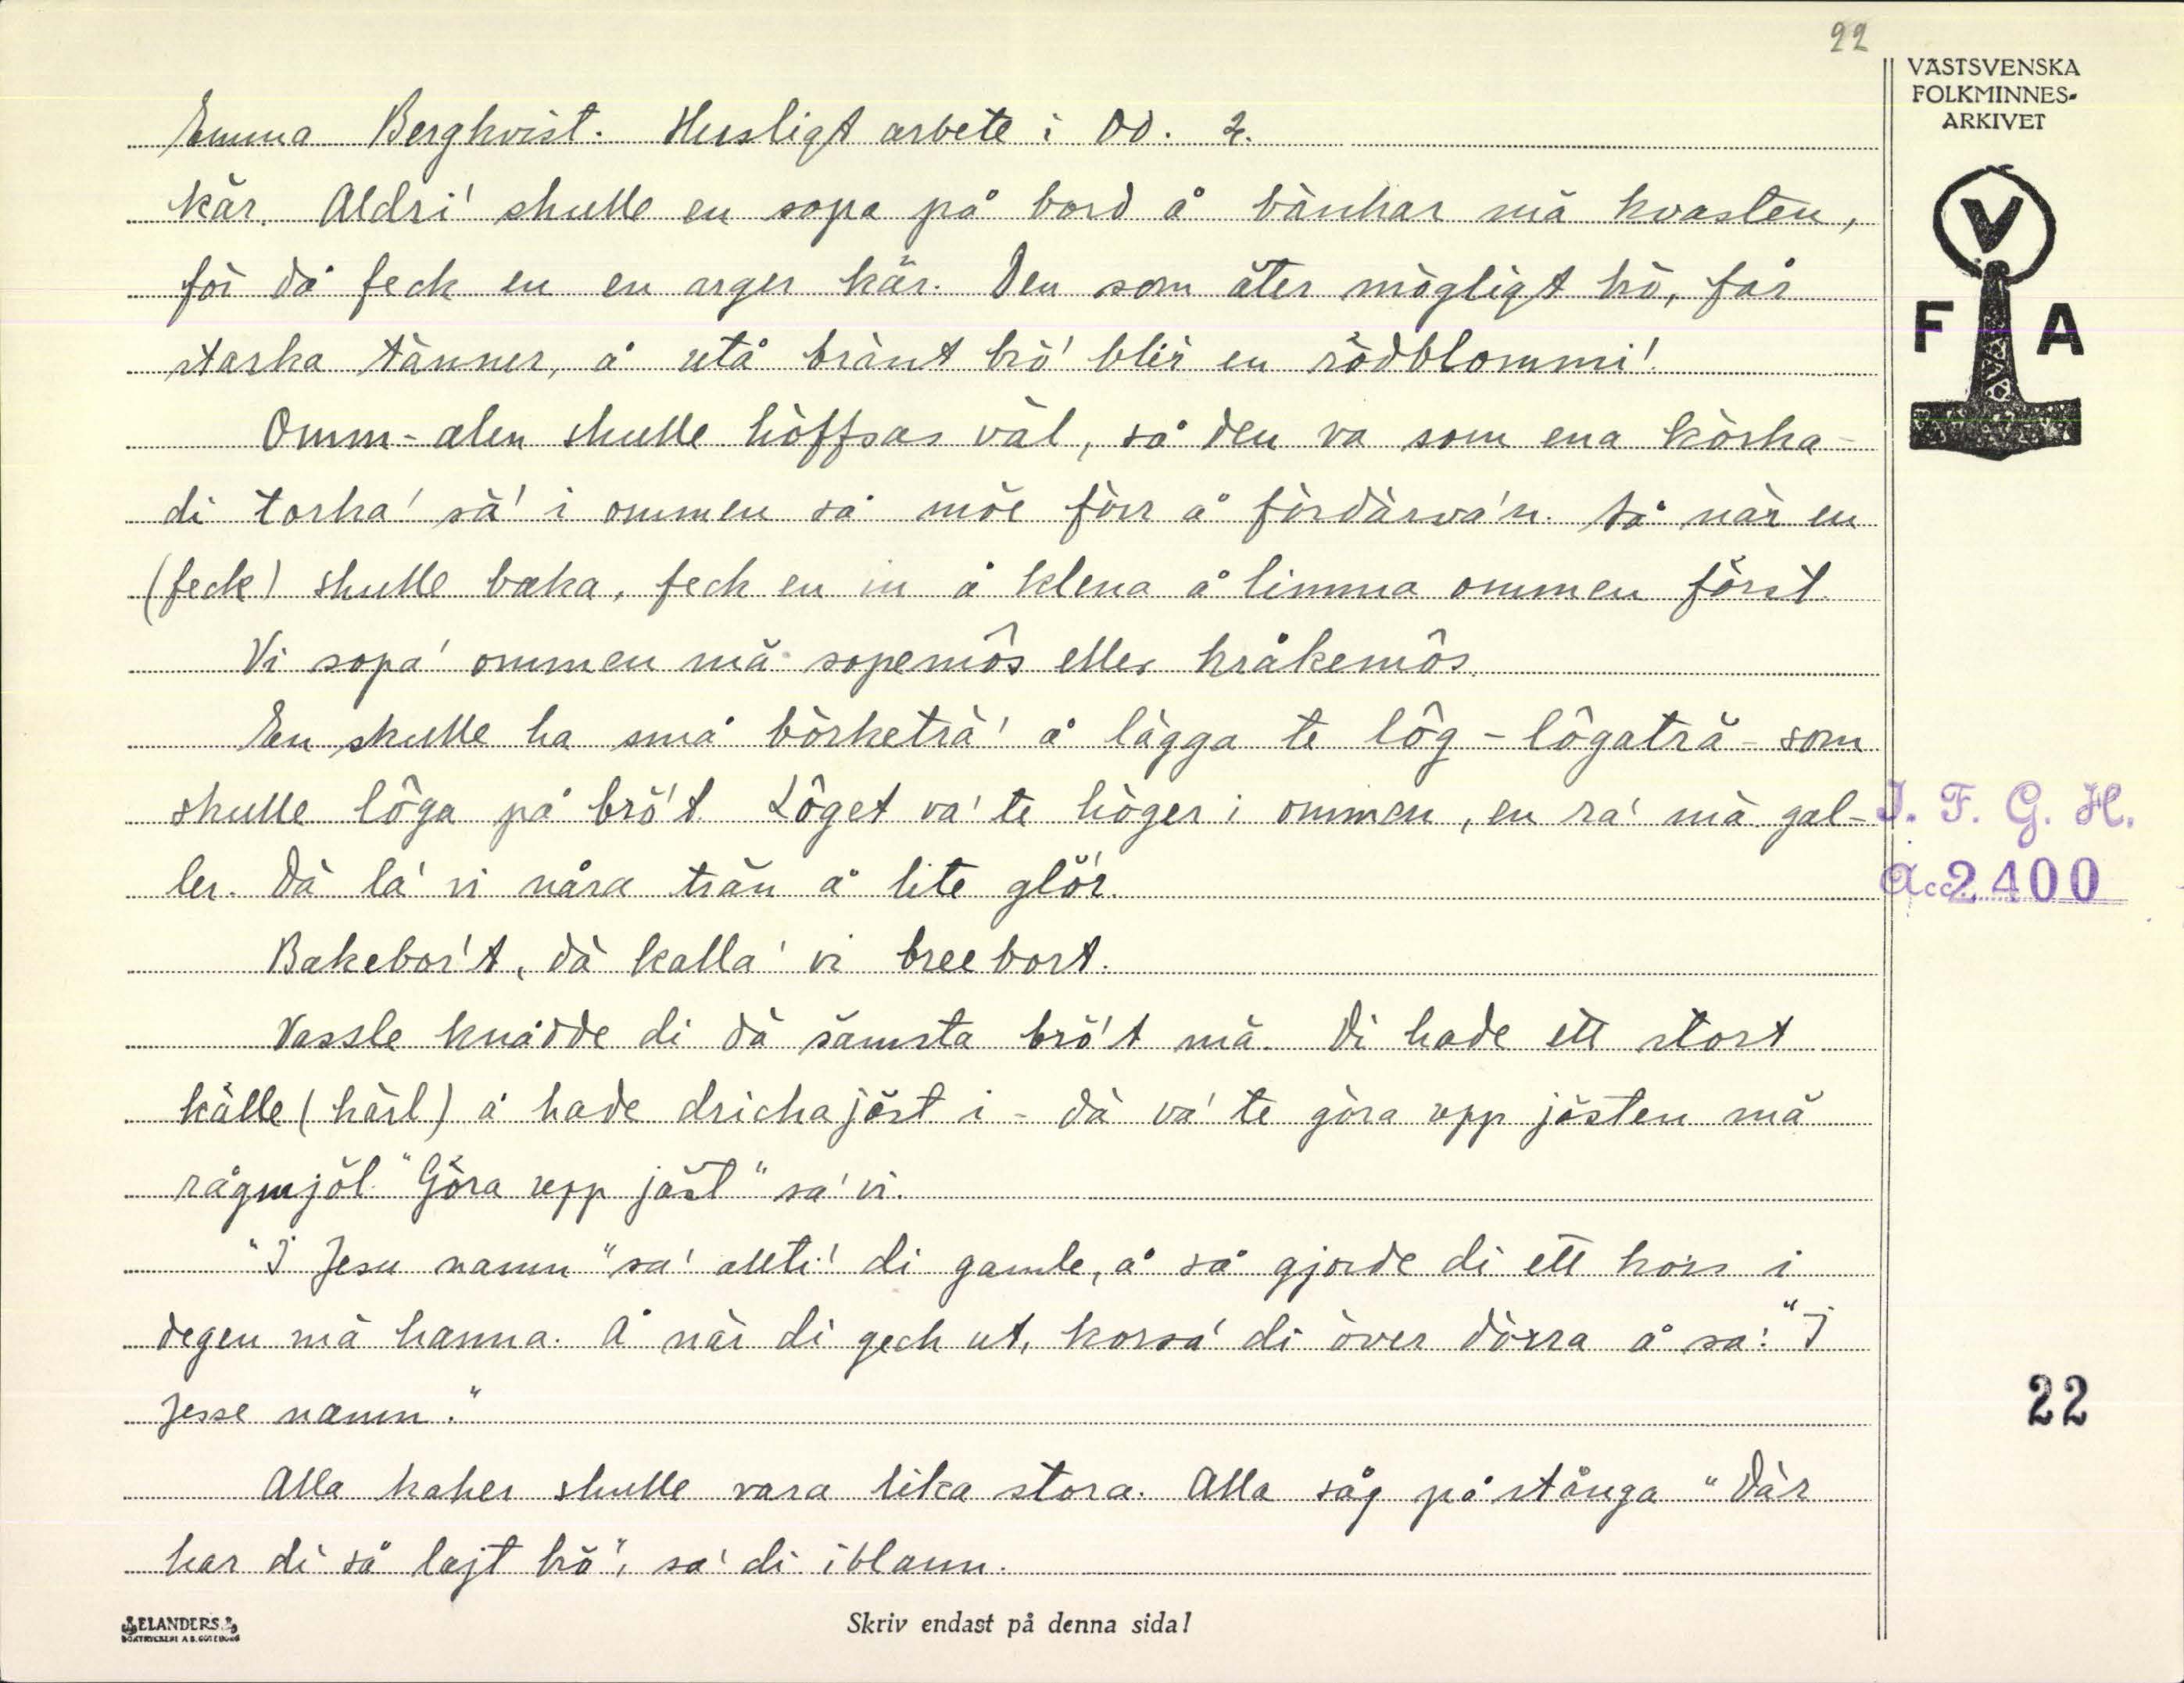 22
VÄSTSVENSKA
FOLKMINNES-
ARKIVET
V
F A
Emma Bergkvist. Husligt arbete i Od. 2.
kär. Aldri' skulle en sopa på bord å bänkar mä kvasten,
för då feck en en arger kär. Den som äter mögligt brö, får
starka tänner, å utå bränt brö' blir en rödblommi'.
Omm-alen skulle höffsas väl, så den va som ena körka-
di torka' sä' i ommen så möe förr å fördärva'n. Så när en
(feck) skulle baka, feck en in å klena å limma ommen först.
Vi sopa' ommen mä sopemôs eller kråkemôs.
En skulle ha små börketrä' å lägga te lôg - lôgaträ - som
skulle lôga på brö't. Lôget va' te höger i ommen, en ra' mä gal-
ler. Dä la' vi nåra trän å lite glö'r.
Bakebor't, dä kalla' vi breebort.
Vassle knådde di dä sämsta brö't mä. Di hade ett stort
källe (kärl) å hade drickajäst i - dä va' te göra opp jästen mä
rågmjöl. "Göra opp jäst" sa' vi.
"I Jesu namn" sa' allti' di gamle, å så gjorde di ett kors i
degen mä hanna. Å när di geck ut, korsa' di över dörra å sa: "I
Jesse namn."
Alla kaker skulle vara lika stora. Alla såg på stånga "Där
har di så lajt brö", sa' di iblann.
I. F. G. H.
Acc. 2400
22
ELANDERS
BOKTRYCKERI A.B. GÖTEBORG
Skriv endast på denna sida!